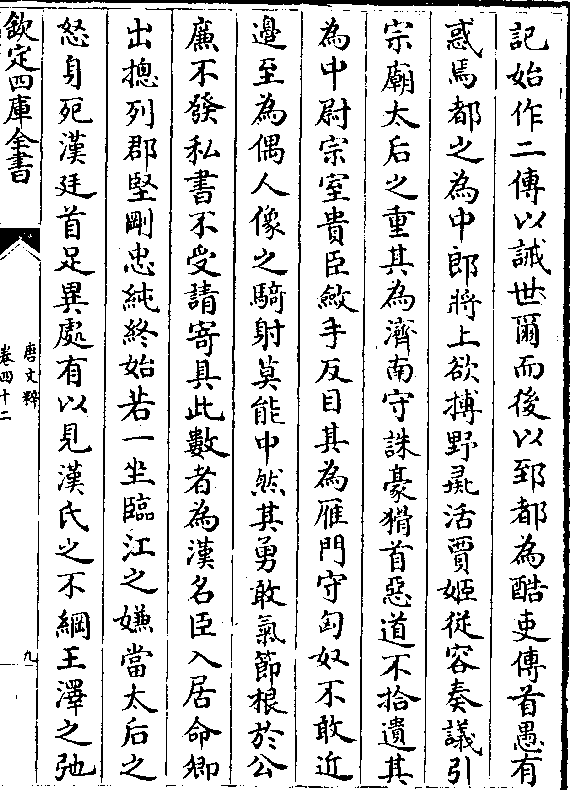 記始作二傳以誡世爾而後以郅都為酷吏傳首愚有
惑焉都之為中郎將上欲搏野彘活賈姬從容奏議引
宗廟太后之重其為濟南守誅豪猾首惡道不拾遺其
為中尉宗室貴臣斂手反目其為雁門守匈奴不敢近
邊至為偶人像之騎射莫能中然其勇敢氣節根於公
廉不發私書不受請寄具此數者為漢名臣入居命卿
出摠列郡堅剛忠純終始若一坐臨江之嫌當太后之
怒身死漢廷首足異處有以見漢氏之不綱王澤之弛
欽定四庫全書
唐文粹
卷四十二
九